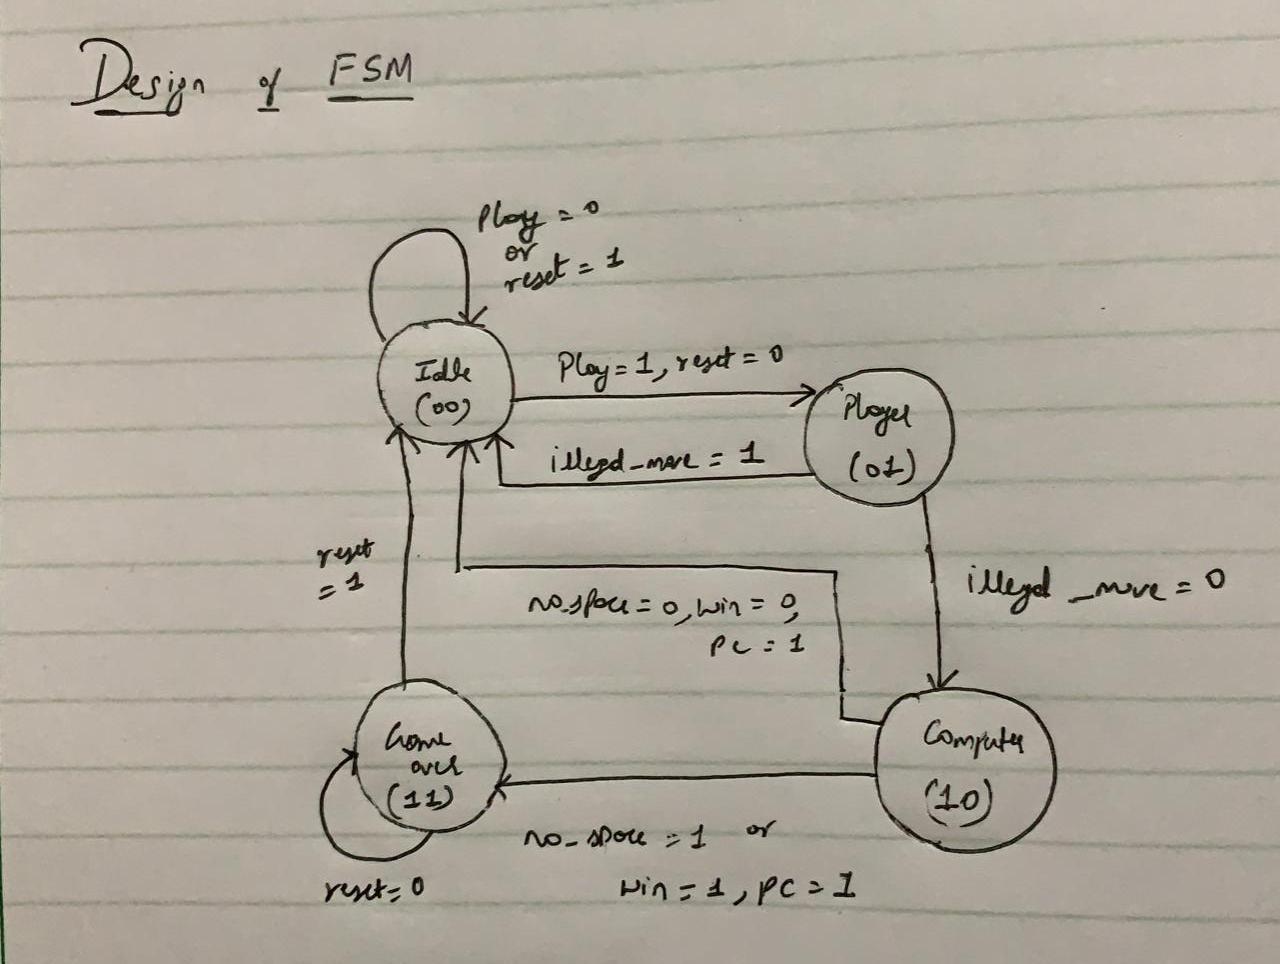 Design of FSM
Play = 0
or
reset = 1
Idle
(00)
Play = 1, reset = 0
Player
(01)
illegal_move = 1
reset
= 1
illegal_move = 0
no_space = 0, win = 0,
PC = 1
Game
over
(11)
Computer
(10)
no_space = 1 or
win = 1, PC = 1
reset = 0